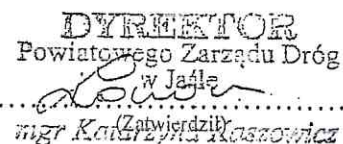 DYREKTOR
Powiatowego Zarządu Dróg
w Jaśle
(Zatwierdził)
mgr Katarzyna Kaszowicz